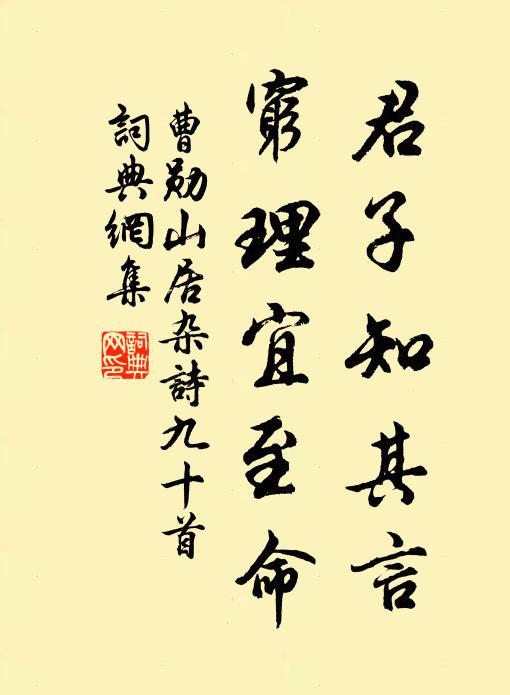 君子知其言
窮理宜至命
曹勋山居杂詩九十首
詞典網集
詞典网印